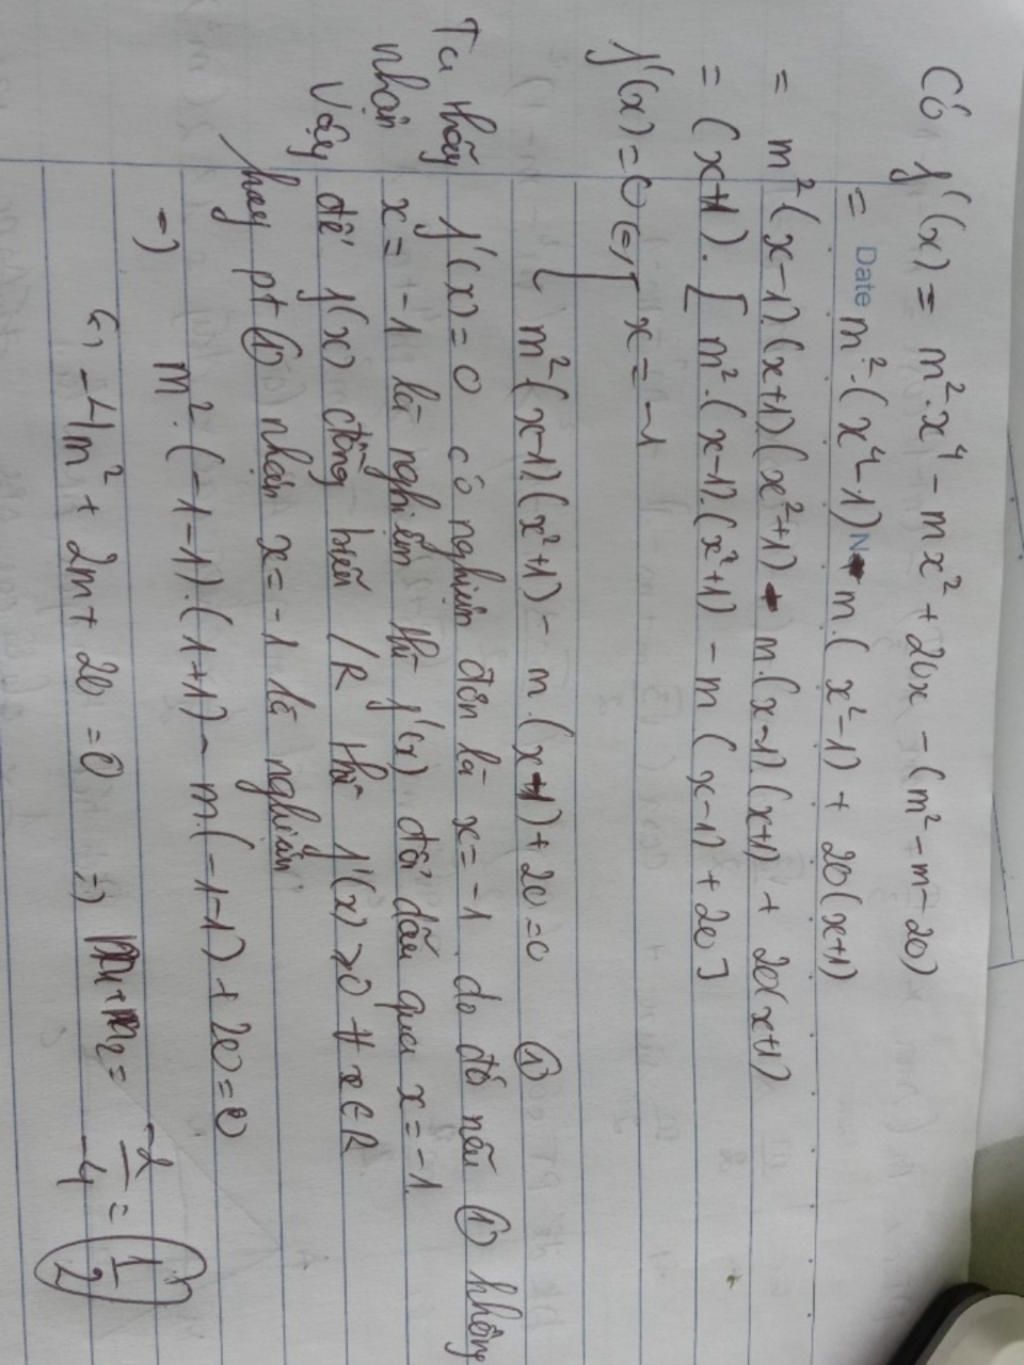 Có f'(x) = m².x⁴ - mx² + 20x - (m² - m - 20)
Date
No
= m².(x⁴-1) - m.(x²-1) + 20(x+1)
= m²(x-1).(x+1)(x²+1) - m.(x-1).(x+1) + 20(x+1)
= (x+1).[m².(x-1).(x²+1) - m(x-1) + 20]
f'(x) = 0 (=) [ x = -1
m²(x-1).(x²+1) - m.(x-1) + 20 = 0 (1)
Ta thấy f'(x) = 0 có nghiệm đơn là x = -1 do đó nếu (1) không
nhận x = -1 là nghiệm thì f'(x) đổi dấu qua x = -1.
Vậy để f(x) đồng biến /R thì f'(x) ≥ 0 ∀ x ∈ R
hay pt (1) nhận x = -1 là nghiệm
=) m².(-1-1).(1+1) - m(-1-1) + 20 = 0
(=) -4m² + 2m + 20 = 0 =) m₁ + m₂ = -2/-4 = 1/2